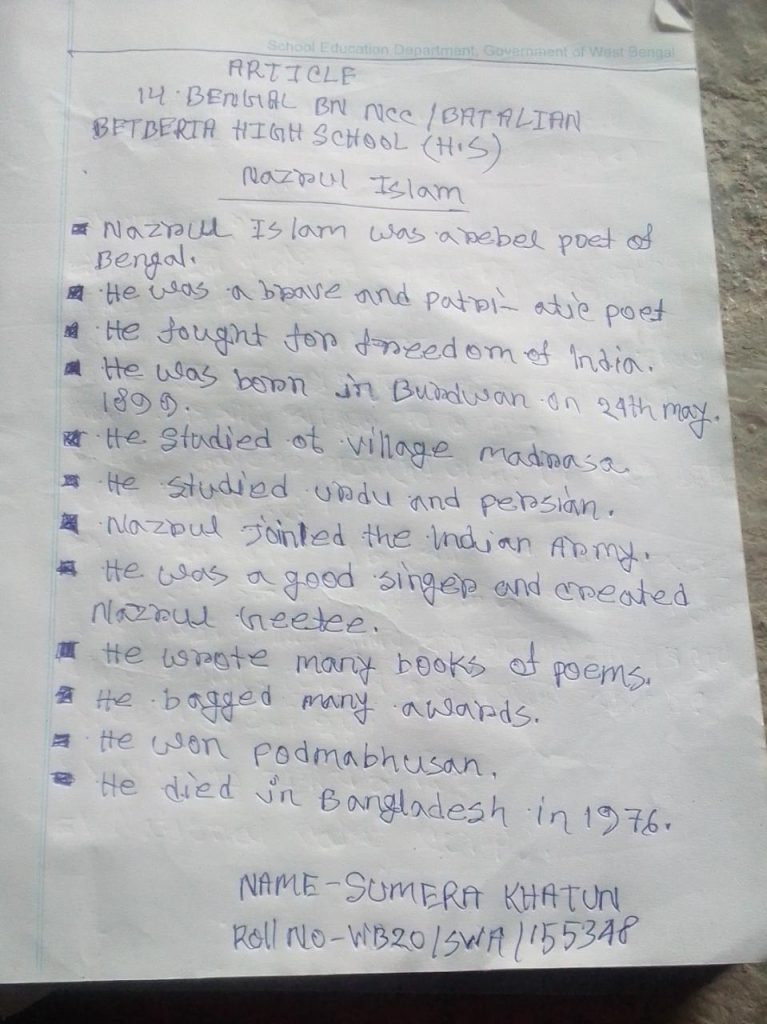 School Education Department, Government of West Bengal
ARTICLE
14 BENGAL BN NCC / BATALIAN
BETBERIA HIGH SCHOOL (H.S)
Nazrul Islam
Nazrul Islam was a rebel poet of
Bengal.
He was a brave and patri- atic poet
He fought for freedom of India.
He was born in Burdwan on 24th may.
1899.
He studied at village madrasa
He studied urdu and persian.
Nazrul joinled the Indian Army.
He was a good singer and created
Nazrul Geetee.
He wrote many books of poems.
He bagged many awards.
He won Padmabhusan.
He died in Bangladesh in 1976.
NAME - SUMERA KHATUN
Roll NO - WB20/SWA/155348